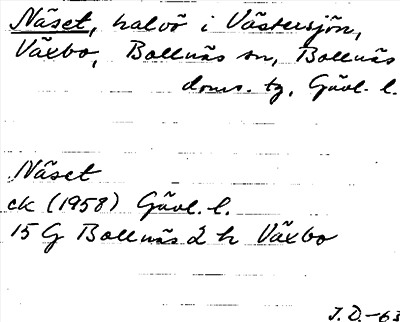 Näset, halvö i Västersjön,
Växbo, Bollnäs sn, Bollnäs
doms. tg, Gävl. l.
Näset
ck (1958) Gävl. l.
15 G Bollnäs 2 h Växbo
J.D.-63